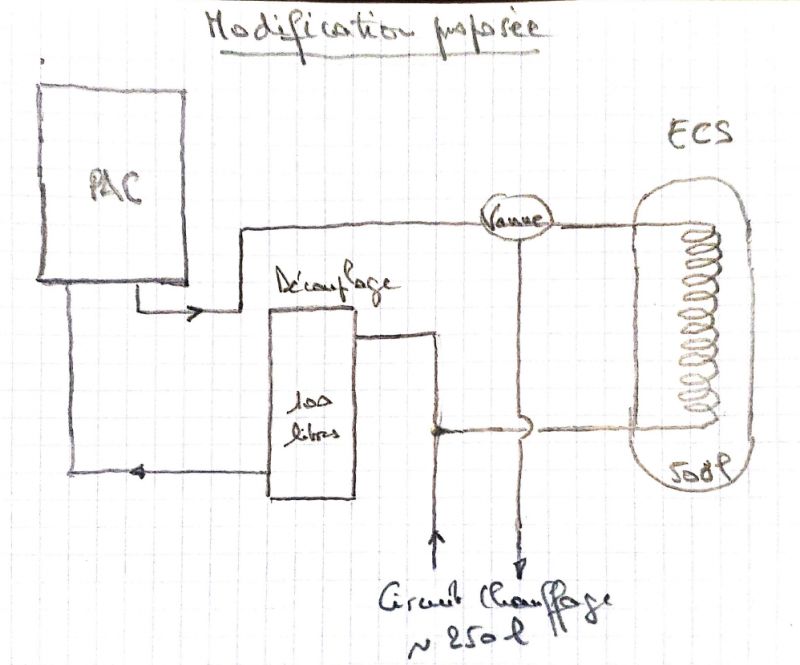 Modification proposée
ECS
PAC
Vanne
Découplage
100
litres
500l
Circuit Chauffage
~ 250l